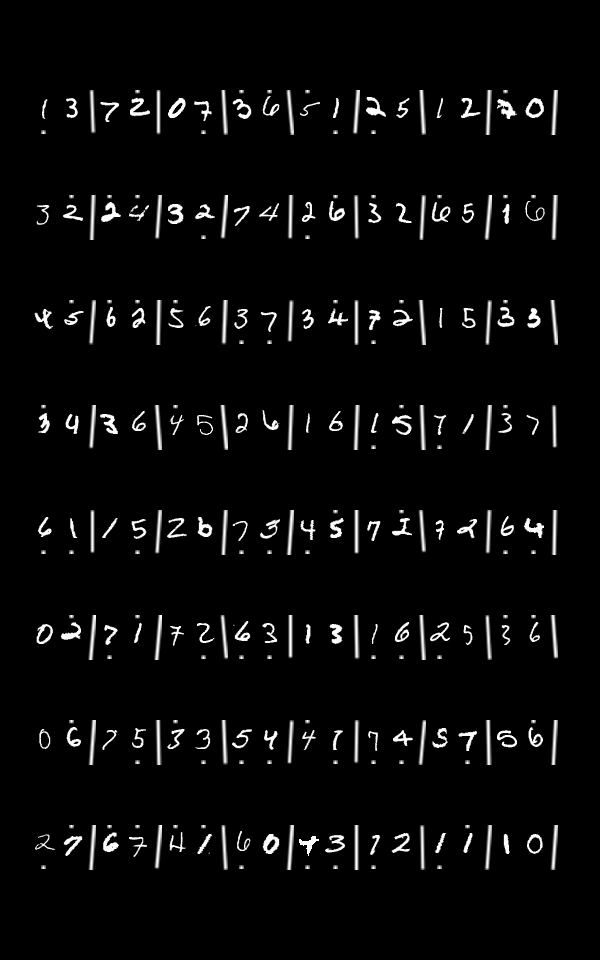 1 3 | 7 2 | 0 7 | 3 6 | 5 1 | 2 5 | 1 2 | 7 0 |
3 2 | 2 4 | 3 2 | 7 4 | 2 6 | 3 2 | 6 5 | 1 6 |
4 5 | 6 2 | 5 6 | 3 7 | 3 4 | 7 2 | 1 5 | 3 3 |
3 4 | 3 6 | 4 5 | 2 6 | 1 6 | 1 5 | 7 1 | 3 7 |
6 1 | 1 5 | 2 6 | 7 3 | 4 5 | 7 1 | 7 2 | 6 4 |
0 2 | 7 1 | 7 2 | 6 3 | 1 3 | 1 6 | 2 5 | 3 6 |
0 6 | 7 5 | 3 3 | 5 4 | 4 7 | 7 4 | 5 7 | 5 6 |
2 7 | 6 7 | 4 1 | 6 0 | 7 3 | 7 2 | 1 1 | 1 0 |